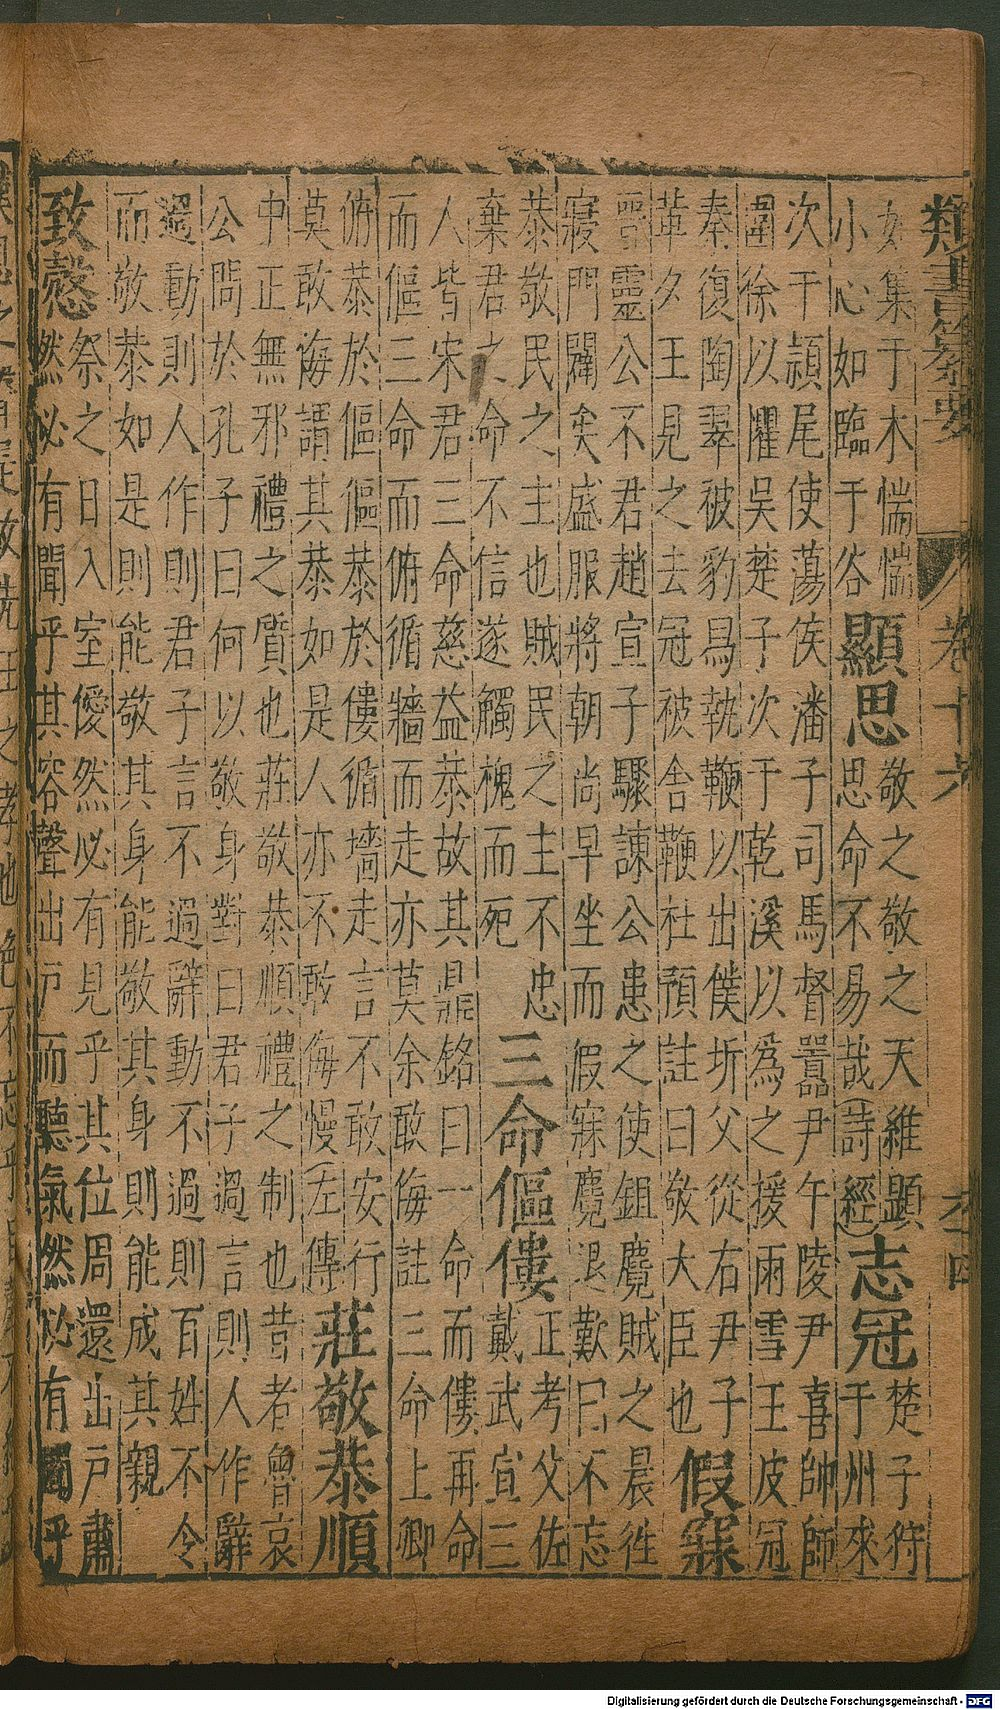 類書纂要 卷十六
如集于木惴惴
小心如臨于谷
顯思
敬之敬之天維顯
思命不易哉(詩經)
志冠
楚子狩
于州來
次于頴尾使蕩侯潘子司馬督囂尹午陵尹喜帥師
圍徐以懼吳楚子次于乾溪以爲之援雨雪王皮冠
秦復陶翠被豹舄執鞭以出僕圻父從右尹子
革夕王見之去冠被舍鞭社預註曰敬大臣也
假寐
晉靈公不君趙宣子驟諫公患之使鉏麑賊之晨徃
寢門闢矣盛服將朝尚早坐而假寐麑退歎曰不忘
恭敬民之主也賊民之主不忠
棄君之命不信遂觸槐而死
三命傴僂
正考父佐
戴武宣三
人皆宋君三命慈益恭故其鼎銘曰一命而僂再命
而傴三命而俯循牆而走亦莫余敢侮註三命上卿
俯恭於傴傴恭於僂循墻走言不敢安行
莫敢侮謂其恭如是人亦不敢侮慢(左傳
莊敬恭順
中正無邪禮之質也莊敬恭順禮之制也昔者魯哀
公問於孔子曰何以敬身對曰君子過言則人作辭
過動則人作則君子言不過辭動不過則百姓不令
而敬恭如是則能敬其身能敬其身則能成其親
致慤
祭之日入室僾然必有見乎其位周還出戶肅
然必有聞乎其容聲出戶而聽氣然必有聞乎
Digitalisierung gefördert durch die Deutsche Forschungsgemeinschaft - DFG